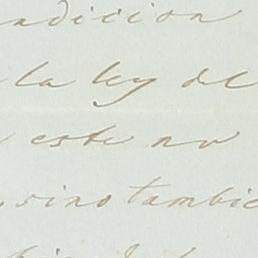 adicion
la ley del
este no
sino tambie